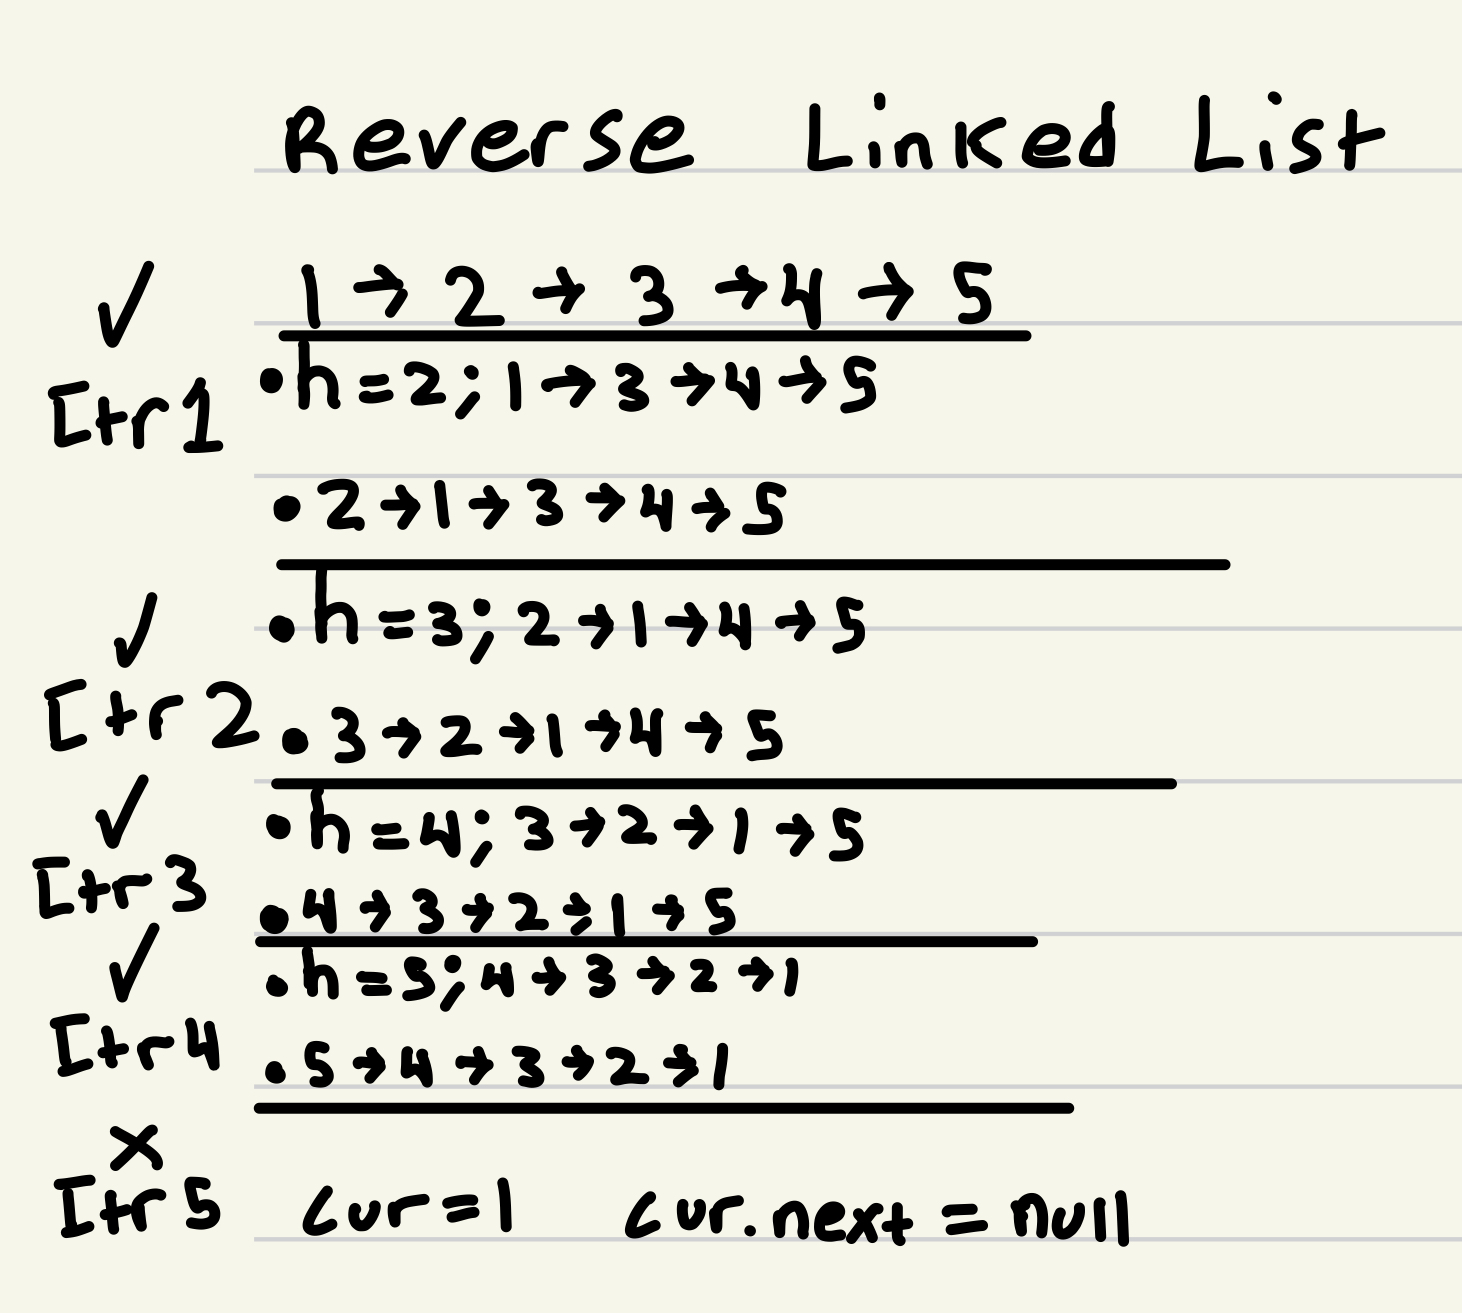 Reverse Linked List
1 → 2 → 3 → 4 → 5
Itr 1
• h = 2; 1 → 3 → 4 → 5
• 2 → 1 → 3 → 4 → 5
Itr 2
• h = 3; 2 → 1 → 4 → 5
• 3 → 2 → 1 → 4 → 5
Itr 3
• h = 4; 3 → 2 → 1 → 5
• 4 → 3 → 2 → 1 → 5
Itr 4
• h = 5; 4 → 3 → 2 → 1
• 5 → 4 → 3 → 2 → 1
Itr 5 cur = 1 cur.next = null